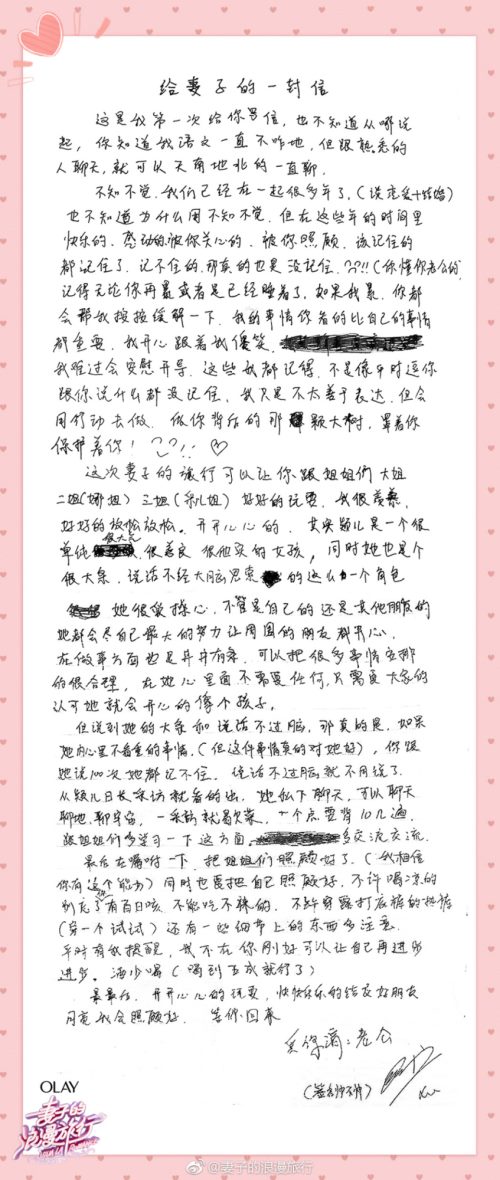 给妻子的一封信
这是我第一次给你写信，也不知道从哪说
起，你知道我语文一直不咋地，但跟熟悉的
人聊天，就可以天南地北的一直聊。
不知不觉，我们已经在一起很多年了，(谈恋爱+结婚)
也不知道为什么用不知不觉，但在这些年的时间里
快乐的、感动的被你关心的、被你照顾、该记住的
都记住了，记不住的，那真的也是没记住，??!!(你懂你老公的)
记得无论你再累或者是已经睡着了，如果我累，你都
会帮我按按缓解一下，我的事情你看的比自己的事情
都重要，我开心跟着我傻笑，
我难过会安慰开导，这些我都记得，不是像平时逗你
跟你说什么都没记住，我只是不太善于表达，但会
用行动去做，做你背后的那颗大树，罩着你
保护着你！??!!
这次妻子的旅行可以让你跟姐姐们大姐
二姐(娜姐)三姐(乐儿姐)好好的玩耍，我很羡慕，
好好的放松放松，开开心心的，其实颖儿是一个很
单纯很大气很善良很他实的女孩，同时她也是个
很大条，说话不经大脑思索的这么一个角色
她很爱操心，不管是自己的还是其他朋友的
她都会尽自己最大的努力让周围的朋友都开心，
在做事方面也是井井有条，可以把很多事情安排
的很合理，在她心里面不需要任何，只需要大家的
认可她就会开心的像个孩子。
但说到她的大条和说话不过脑，那真的是，如果
她内心里不看重的事情，(但这件事情真的对她好)，你跟
她说100次她都记不住，说话不过脑就不用说了，
从颖儿日长采访就看的出，她私下聊天，可以聊天
聊地，聊宇宙，一采访就
跟姐姐们多学习一下这方面，多交流交流
最后在嘱咐一下，把姐姐们照顾好了，(我相信
你有这个能力)同时也要把自己照顾好，不许喝凉的
别忘了有百日咳，不能吃不辣的，不许穿露打底裤的热裤
(穿一个试试)还有一些细节上的东西多注意
平时有我提醒，我不在你刚好可以让自己再进步
进步，酒少喝(喝到五成就行了)
最最后，开开心心的玩耍，快快乐乐的结交好朋友
等你回来
老公
OLAY
妻子的
浪漫旅行
@妻子的浪漫旅行